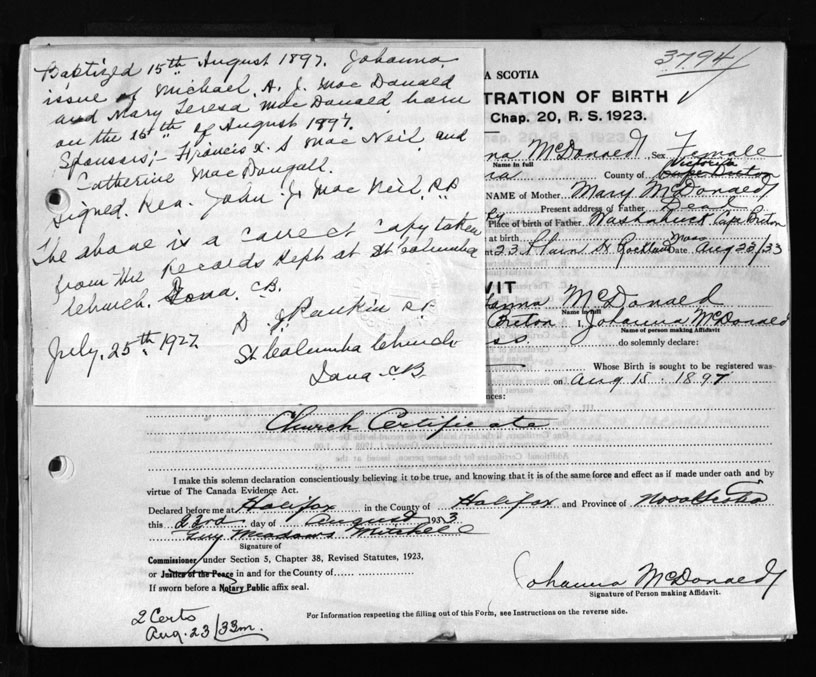 Baptized 15th August 1897. Johanna
issue of Michael. A. J. Mac Donald
and Mary Teresa Mac Donald born
on the 15th of August 1897.
Sponsors;- Francis X. S Mac Neil and
Catherine MacDougall.
Signed. Rev. John J. Mac Neil, P.P
The above is a correct copy taken
from the Records kept at St Columba
Church. Iona. C.B.
D J Rankin P.P.
July. 25th. 1927.
St Columba Church
Iona C.B.
3794
A SCOTIA
TRATION OF BIRTH
Chap. 20, R. S. 1923.
na McDonald Sex Female
Name in full
Victoria
County of Cape Breton
NAME of Mother Mary McDonald
Present address of Father Dead
Place of birth of Father Washabuck Cape Breton
at birth
23 Plain St Rockland Mass Date Aug 23/33
VIT
anna McDonald
Name in full
Breton I, Johanna McDonald
Name of person making Affidavit
do solemnly declare:
Whose Birth is sought to be registered was
on Aug 15. 1897
nces:
Church Certificate
I make this solemn declaration conscientiously believing it to be true, and knowing that it is of the same force and effect as if made under oath and by
virtue of The Canada Evidence Act.
Declared before me at Halifax in the County of Halifax and Province of Nova Scotia
this 23rd day of August 1933
Guy Meadows Mitchell
Signature of
Commissioner under Section 5, Chapter 38, Revised Statutes, 1923,
or Justice of the Peace in and for the County of
If sworn before a Notary Public affix seal.
Johanna McDonald
Signature of Person making Affidavit.
For Information respecting the filling out of this Form, see Instructions on the reverse side.
2 Certs
Aug. 23/33m.